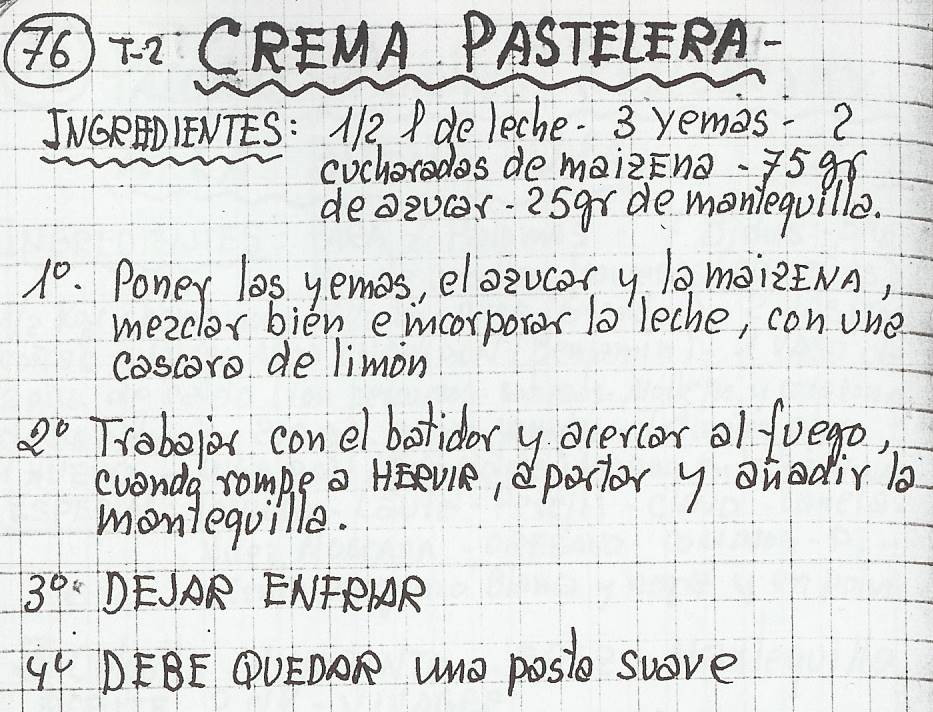 76 T-2 CREMA PASTELERA-
INGREDIENTES: 1/2 l de leche - 3 yemas - 2
cucharadas de maizena - 75 gr
de azucar - 25 gr de mantequilla.
1º. Poner las yemas, el azucar y la maizENA,
mezclar bién e incorporar la leche, con una
cascara de limón
2º Trabajar con el batidor y acercar al fuego,
cuando rompe a HERVIR, apartar y añadir la
mantequilla.
3º. DEJAR ENFRIAR
4º DEBE QUEDAR una pasta suave